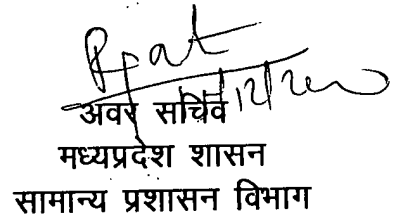 अवर सचिव
मध्यप्रदेश शासन
सामान्य प्रशासन विभाग